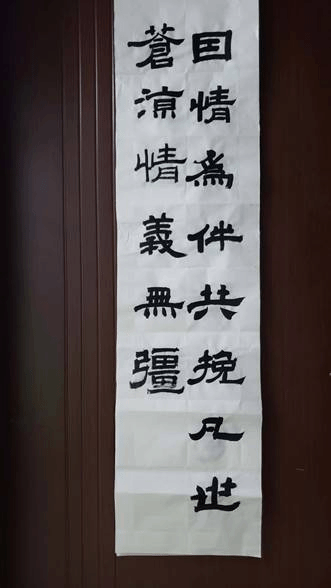 因情為伴共挽凡世
蒼涼情義無疆